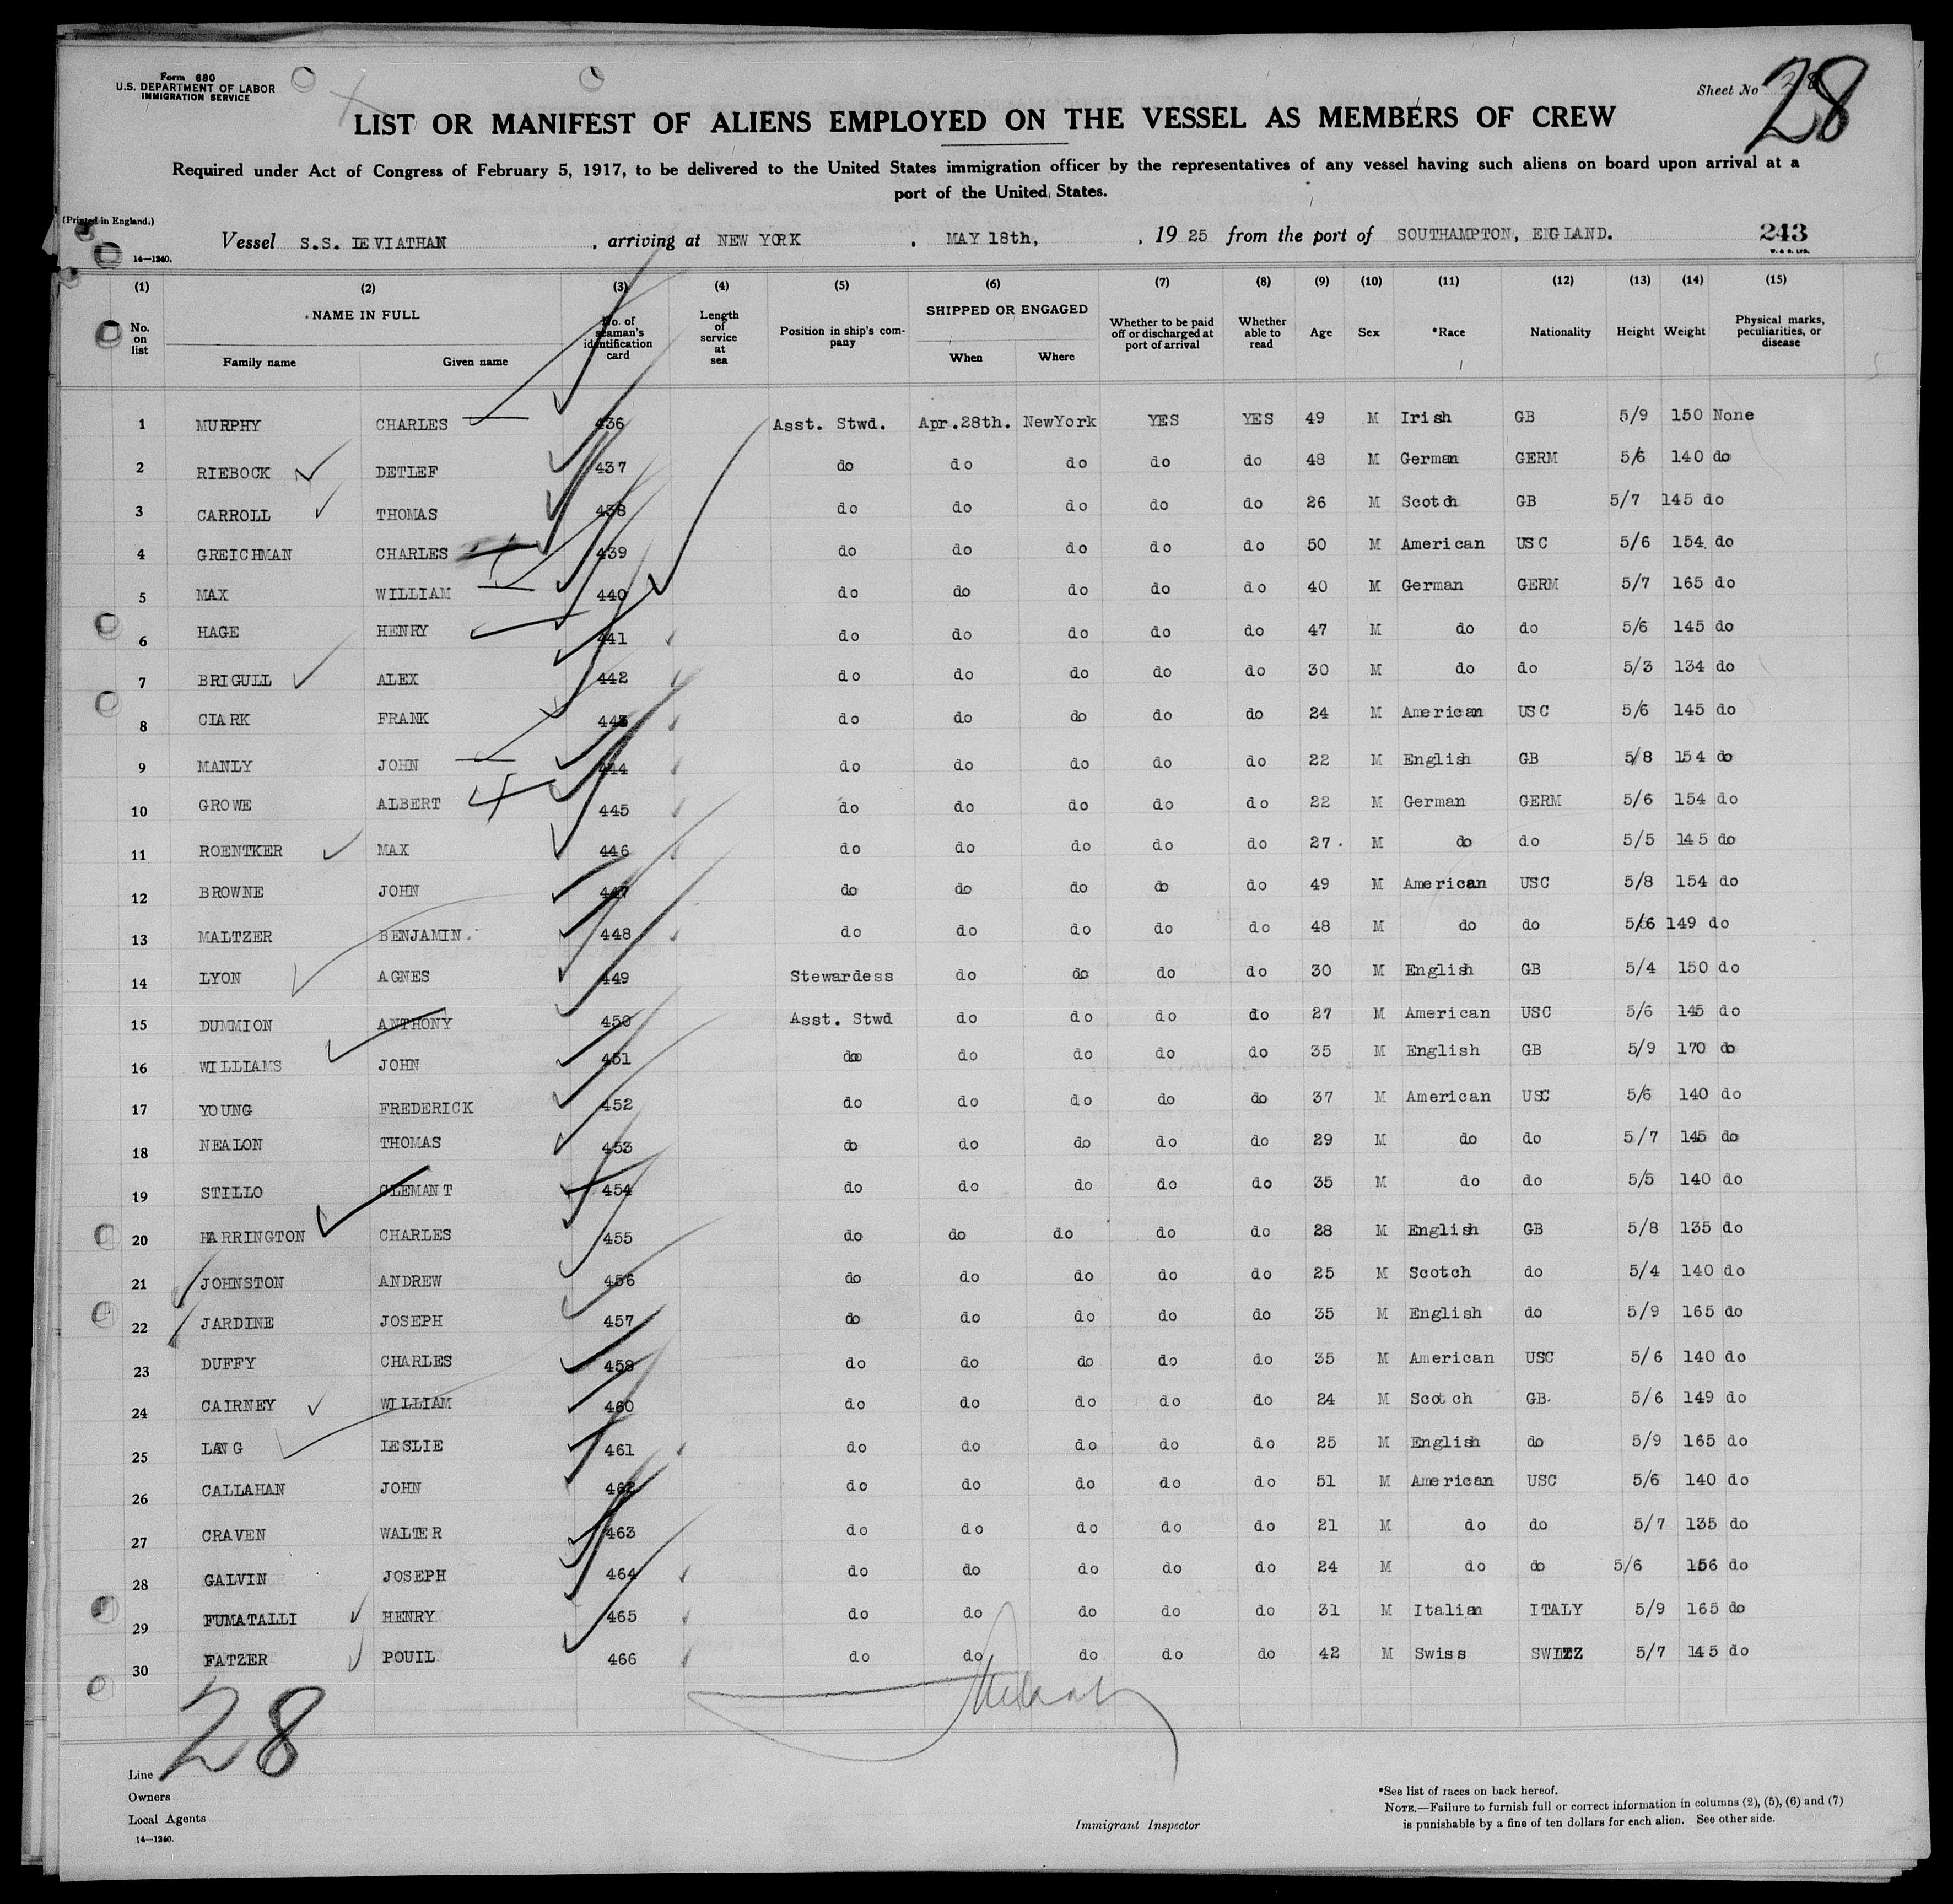 Form 680
U.S. DEPARTMENT OF LABOR
IMMIGRATION SERVICE
Sheet No 28
28
LIST OR MANIFEST OF ALIENS EMPLOYED ON THE VESSEL AS MEMBERS OF CREW
Required under Act of Congress of February 5, 1917, to be delivered to the United States immigration officer by the representatives of any vessel having such aliens on board upon arrival at a
port of the United States.
(Printed in England.)
Vessel S.S. LEVIATHAN , arriving at NEW YORK , MAY 18th, , 19 25 from the port of SOUTHAMPTON, ENGLAND. 243
14—1240. W. & S. LTD.
(1) (2) (3) (4) (5) (6) (7) (8) (9) (10) (11) (12) (13) (14) (15)
No. on list NAME IN FULL Family name Given name No. of seaman's identification card Length of service at sea Position in ship's company SHIPPED OR ENGAGED When Where Whether to be paid off or discharged at port of arrival Whether able to read Age Sex *Race Nationality Height Weight Physical marks, peculiarities, or disease
1 MURPHY CHARLES 436 Asst. Stwd. Apr.28th. NewYork YES YES 49 M Irish GB 5/9 150 None
2 RIEBOCK DETLEF 437 do do do do do 48 M German GERM 5/6 140 do
3 CARROLL THOMAS 438 do do do do do 26 M Scotch GB 5/7 145 do
4 GREICHMAN CHARLES 439 do do do do do 50 M American USC 5/6 154 do
5 MAX WILLIAM 440 do do do do do 40 M German GERM 5/7 165 do
6 HAGE HENRY 441 do do do do do 47 M do do 5/6 145 do
7 BRIGULL ALEX 442 do do do do do 30 M do do 5/3 134 do
8 CLARK FRANK 443 do do do do do 24 M American USC 5/6 145 do
9 MANLY JOHN 444 do do do do do 22 M English GB 5/8 154 do
10 GROWE ALBERT 445 do do do do do 22 M German GERM 5/6 154 do
11 ROENTKER MAX 446 do do do do do 27. M do do 5/5 145 do
12 BROWNE JOHN 447 do do do do do 49 M American USC 5/8 154 do
13 MALTZER BENJAMIN. 448 do do do do do 48 M do do 5/6 149 do
14 LYON AGNES 449 Stewardess do do do do 30 M English GB 5/4 150 do
15 DUMMION ANTHONY 450 Asst. Stwd do do do do 27 M American USC 5/6 145 do
16 WILLIAMS JOHN 451 do do do do do 35 M English GB 5/9 170 do
17 YOUNG FREDERICK 452 do do do do do 37 M American USC 5/6 140 do
18 NEALON THOMAS 453 do do do do do 29 M do do 5/7 145 do
19 STILLO CLEMANT 454 do do do do do 35 M do do 5/5 140 do
20 HARRINGTON CHARLES 455 do do do do do 28 M English GB 5/8 135 do
21 JOHNSTON ANDREW 456 do do do do do 25 M Scotch do 5/4 140 do
22 JARDINE JOSEPH 457 do do do do do 35 M English do 5/9 165 do
23 DUFFY CHARLES 459 do do do do do 35 M American USC 5/6 140 do
24 CAIRNEY WILLIAM 460 do do do do do 24 M Scotch GB. 5/6 149 do
25 LANG LESLIE 461 do do do do do 25 M English do 5/9 165 do
26 CALLAHAN JOHN 462 do do do do do 51 M American USC 5/6 140 do
27 CRAVEN WALTER 463 do do do do do 21 M do do 5/7 135 do
28 GALVIN JOSEPH 464 do do do do do 24 M do do 5/6 156 do
29 FUMATALLI HENRY 465 do do do do do 31 M Italian ITALY 5/9 165 do
30 FATZER POUIL 466 do do do do do 42 M Swiss SWITZ 5/7 145 do
28
Line
Owners
Local Agents
14—1240.
Immigrant Inspector
*See list of races on back hereof.
NOTE.—Failure to furnish full or correct information in columns (2), (5), (6) and (7)
is punishable by a fine of ten dollars for each alien. See other side.